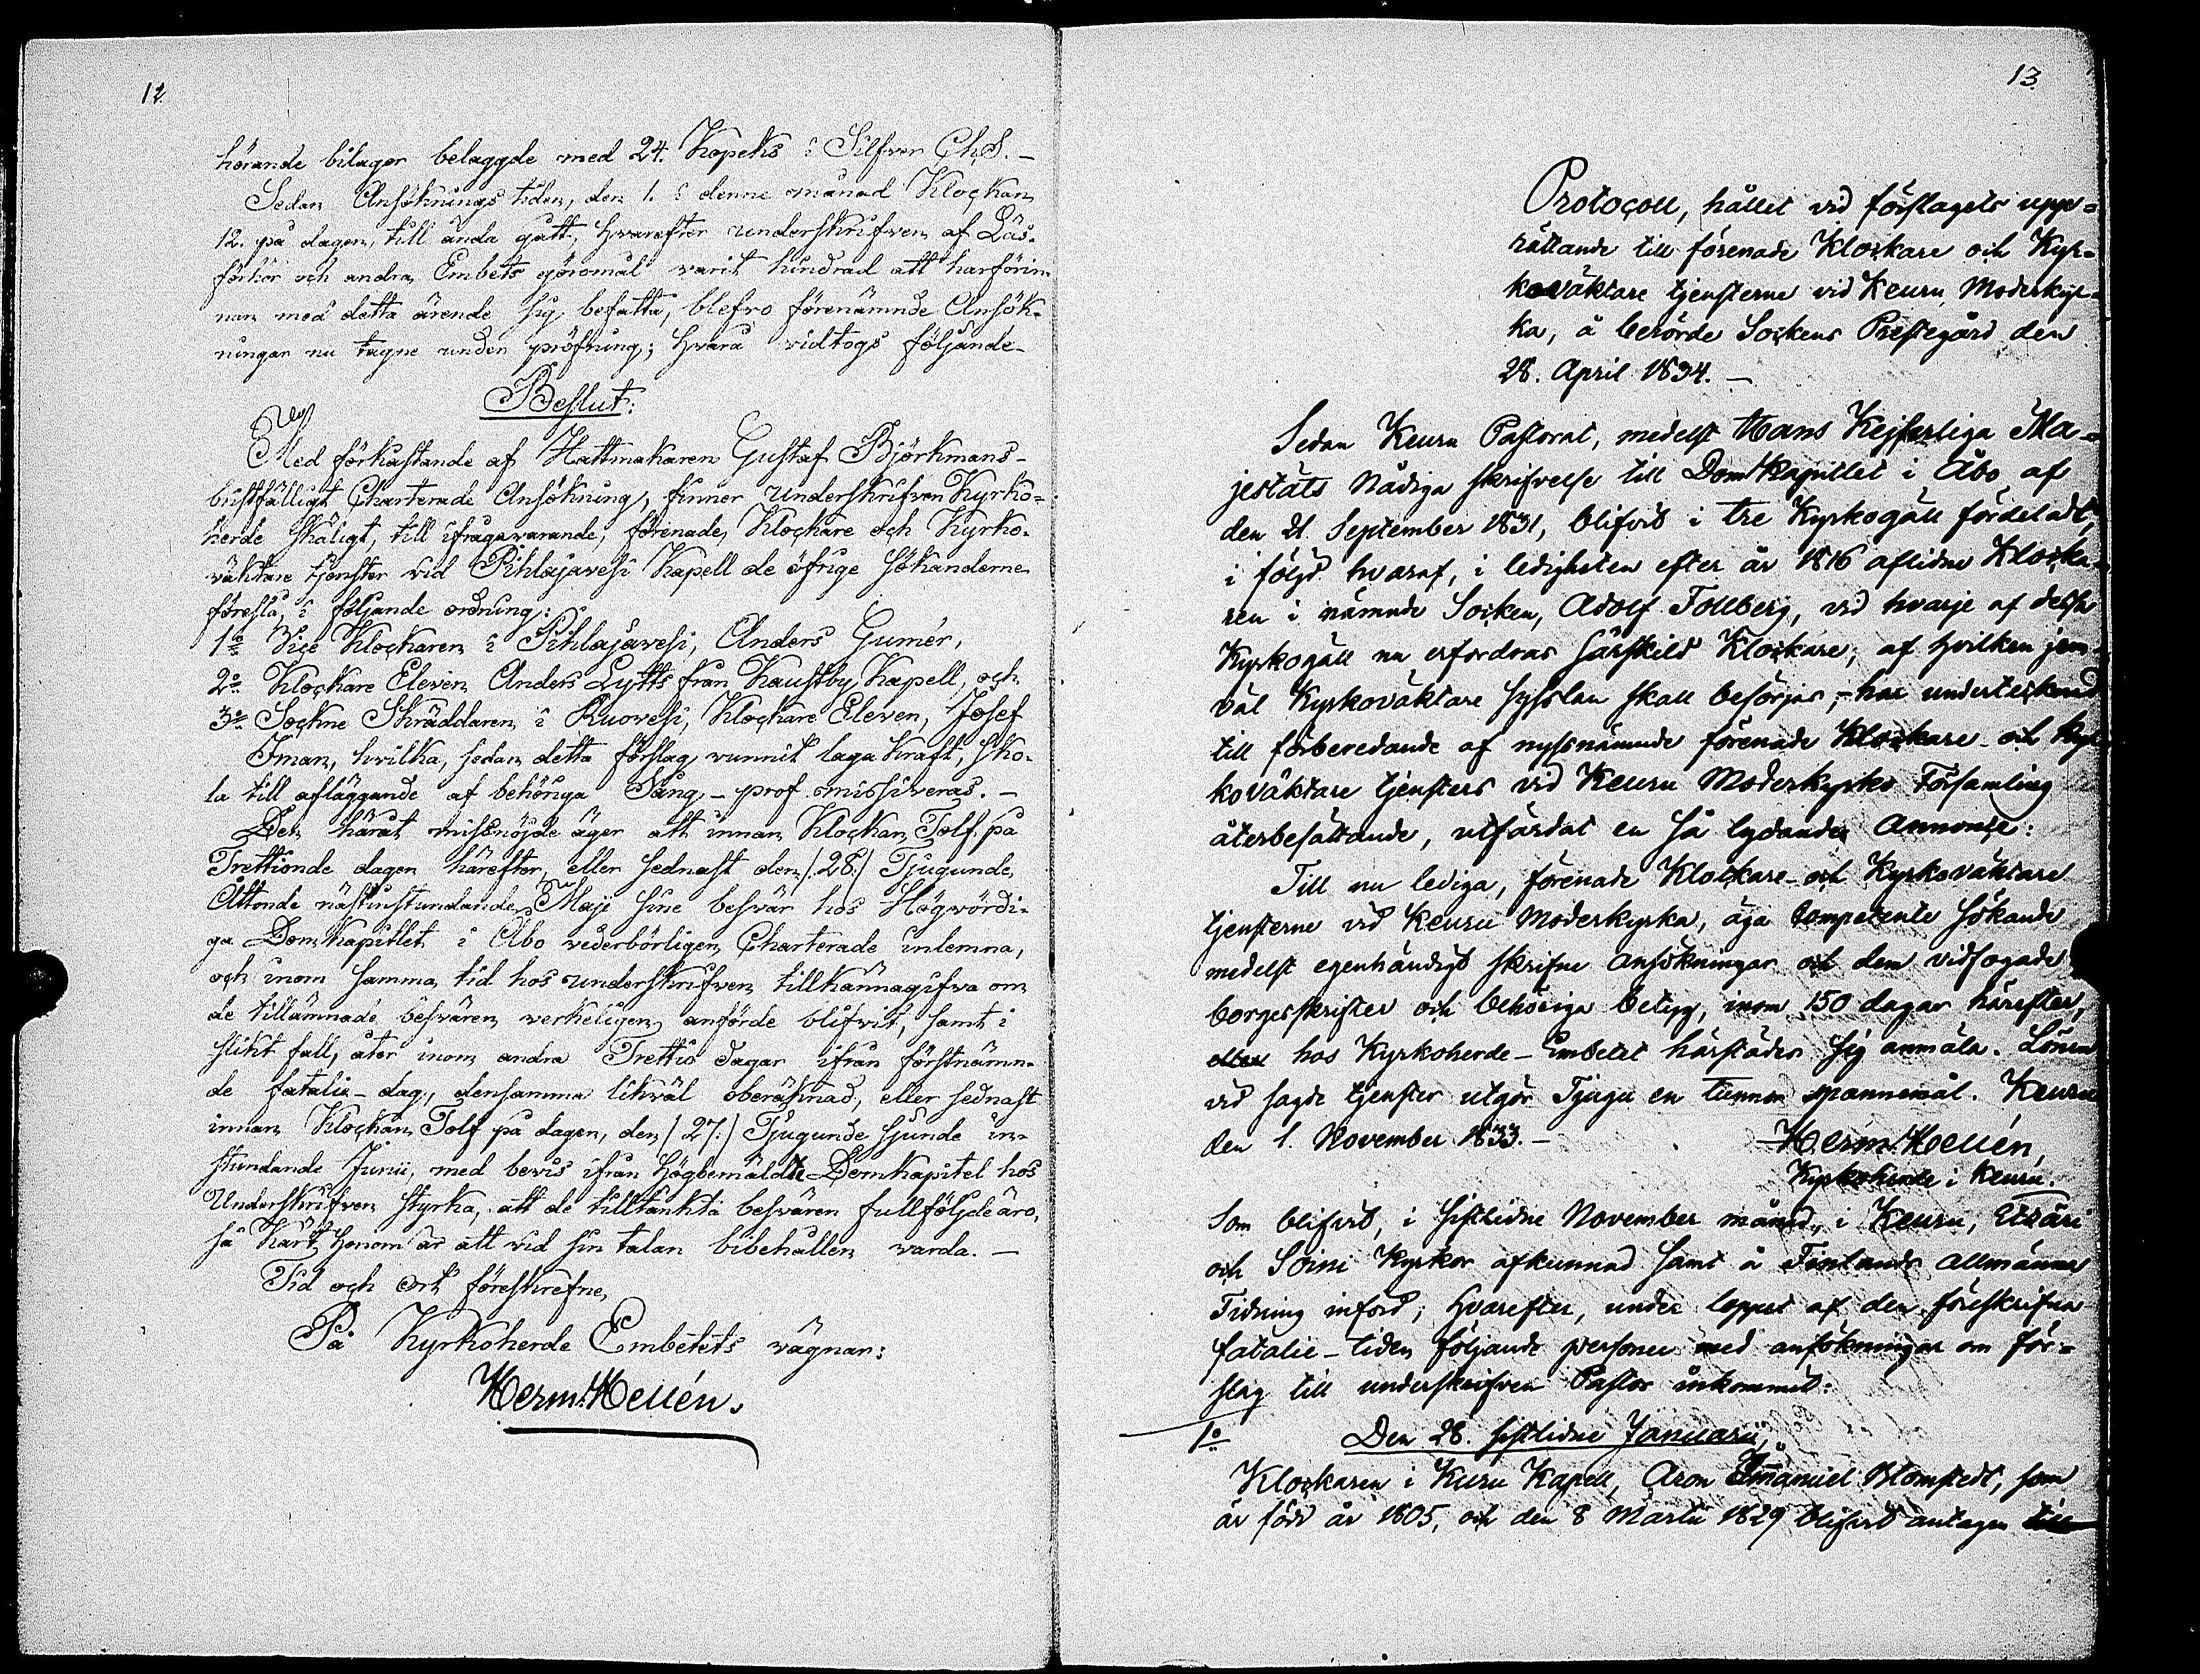 12.
hörande bilagor belaggde med 24. Kopeks i Silfver Ch. S. –
Sedan Ansöknings tiden, den 1. i denne månad Klockan
12. på dagen, till ända gått, hvarefter underskrifven af Läs-
förhör och andra Embets göromål varit hindrad att härförin-
nan med detta ärende sig befatta, blefvo förenämnde Ansök-
ningar nu tagne under pröfning; hvarå vidtogs följande
Beslut:
Med förkastande af Hattmakaren Gustaf Björkmans
bristfälligt Charterade Ansökning, finner Underskrifven Kyrko-
herde skäligt, till ifrågavarande, förenade, Klockare och Kyrko-
väktare tjenster vid Pihlajavesi Kapell de öfrige Sökanderne
föreslå, i följande ordning:
1o Vice Klockaren i Pihlajavesi, Anders Gumér,
2o Klockare Eleven Anders Lytts från Kaustby Kapell, och
3o Sockne Skräddaren i Ruovesi, Klockare Eleven, Josef
Iman, hvilka, sedan detta förslag vunnit laga kraft, sko-
la till afläggande af behöriga Sång-prof missiveras. –
Den häråt missnöjde äger att innan Klockan Tolf på
Trettionde dagen härefter, eller sednast den /: 28 :/ Tjugunde
Åttonde nästinstundande Maji sine besvär hos Högvördi-
ga Domkapitlet i Åbo vederbörligen Charterade inlemna,
och inom samma tid hos underskrifven tillkännagifva om
de tillämnade besvären verkeligen anförde blifvit, samt i
slikt fall, åter inom andra Trettio dagar ifrån förstnämn-
de fatalie-dag, densamma likväl oberäknad, eller sednast
innan Klockan Tolf på dagen, den /: 27 :/ Tjugunde Sjunde in-
stundande Junii, med bevis ifrån Högbemälde Domkapitel hos
Underskrifven styrka, att de tilltänkta besvären fullföljde äro,
så kärt honom är att vid sin talan bibehållen varda. –
Tid och ort föreskrefne,
På Kyrkoherde Embetets vägnar:
Herm: Hellén.
13.
Protocoll, hållit vid förslagets upp-
rättande till förenade Klockare och Kyr-
koväktare tjensterne vid Keuru Moderkyr-
ka, å berörde Sockens Prestegård den
28. April 1834. –
Sedan Keuru Pastorat, medelst Hans Kejserliga Ma-
jestäts Nådiga skrifvelse till DomKapitlet i Åbo af
den 21 September 1831, blifvit i tre Kyrkogäll fördeladt,
i följd hvaraf, i ledigheten efter år 1816 aflidne Klocka-
ren i nämnde Socken, Adolf Follberg, vid hvarje af dessa
Kyrkogäll nu erfordras särskild Klockare, af hvilken jem-
väl Kyrkoväktare sysslan skall besörjas; – har undertecknad
till förberedande af nyssnämnde förenade Klockare- och Kyr-
koväktare tjensters vid Keuru Moderkyrko Församling
återbesättande, utfärdat en så lydande Annonse:
Till nu lediga, förenade Klockare- och Kyrkoväktare
tjensterne vid Keuru Moderkyrka, äga competente Sökande
medelst egenhändigt skrifne ansökningar och dem vidfogade
borgesskrifter och behöriga betyg, inom 150 dagar härefter,
hos Kyrkoherde-Embetet härstädes sig anmäla. Lönen
vid sagde tjenster utgör Tjugu en tunnor spannemål. Keuru
den 1. November 1833. –
Herm: Hellén,
Kyrkoherde i Keuru.
Som blifvit, i sistlidne November månad, i Keuru, Etzäri
och Soini Kyrkor afkunnad samt å Finlands Allmänna
Tidning införd; hvarefter, under loppet af den föreskrifna
fatalie-tiden följande personer med ansökningar om för-
slag till underskrifven Pastor inkommit:
1o Den 28. sistlidne Januarii,
Klockaren i Kuru Kapell, Aron Emanuel Blomstedt, som
är född år 1805, och den 8 Martii 1829 blifvit antagen